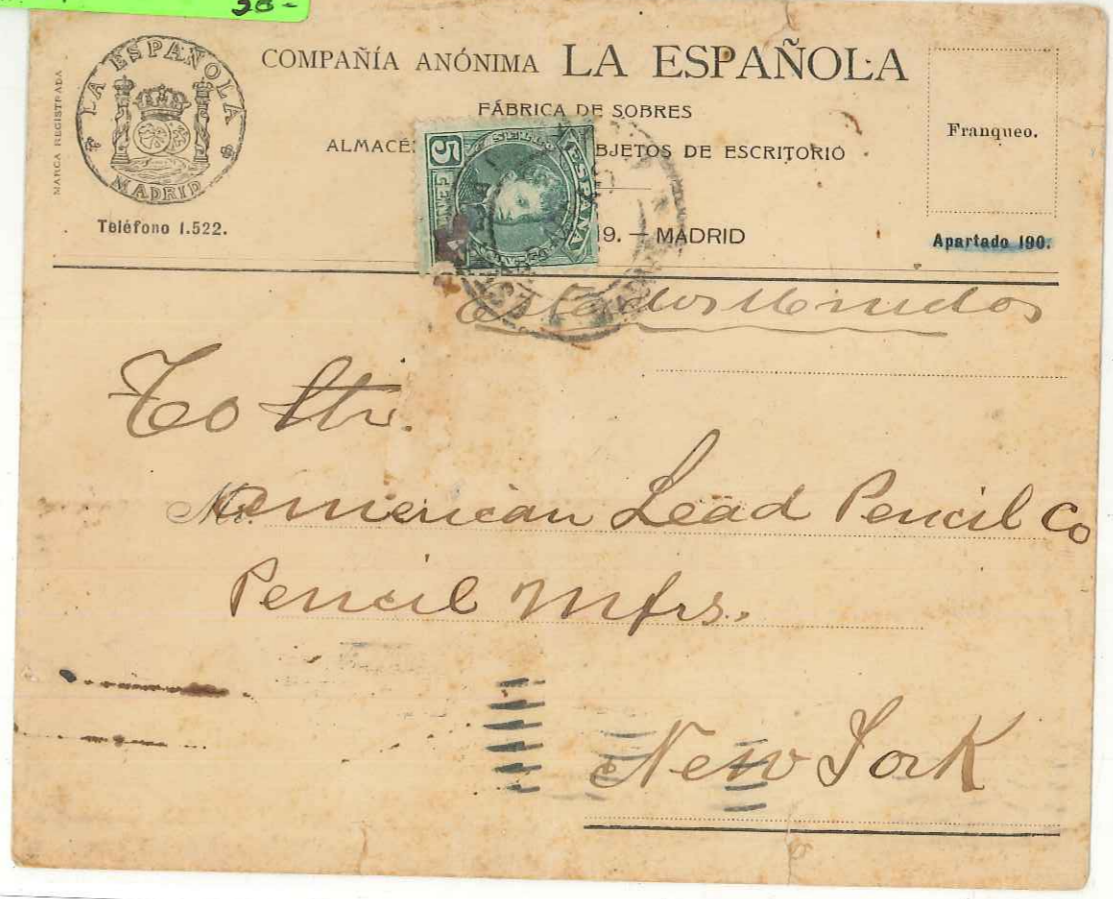 38-
LA ESPAÑOLA
MADRID
MARCA REGISTRADA
Teléfono 1.522.
COMPAÑÍA ANÓNIMA LA ESPAÑOLA
FÁBRICA DE SOBRES
ALMACÉ BJETOS DE ESCRITORIO
19. — MADRID
Franqueo.
Apartado 190.
5
ESPAÑA
Estados Unidos
To the
American Lead Pencil Co
Pencil Mfrs.
New York